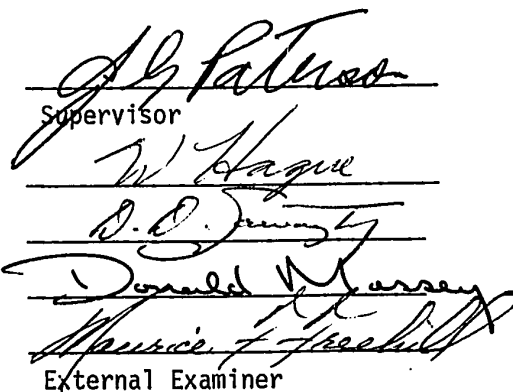 J G Paterson
Supervisor
W Hague
D. D.
Donald Massey
Maurice F Freehill
External Examiner